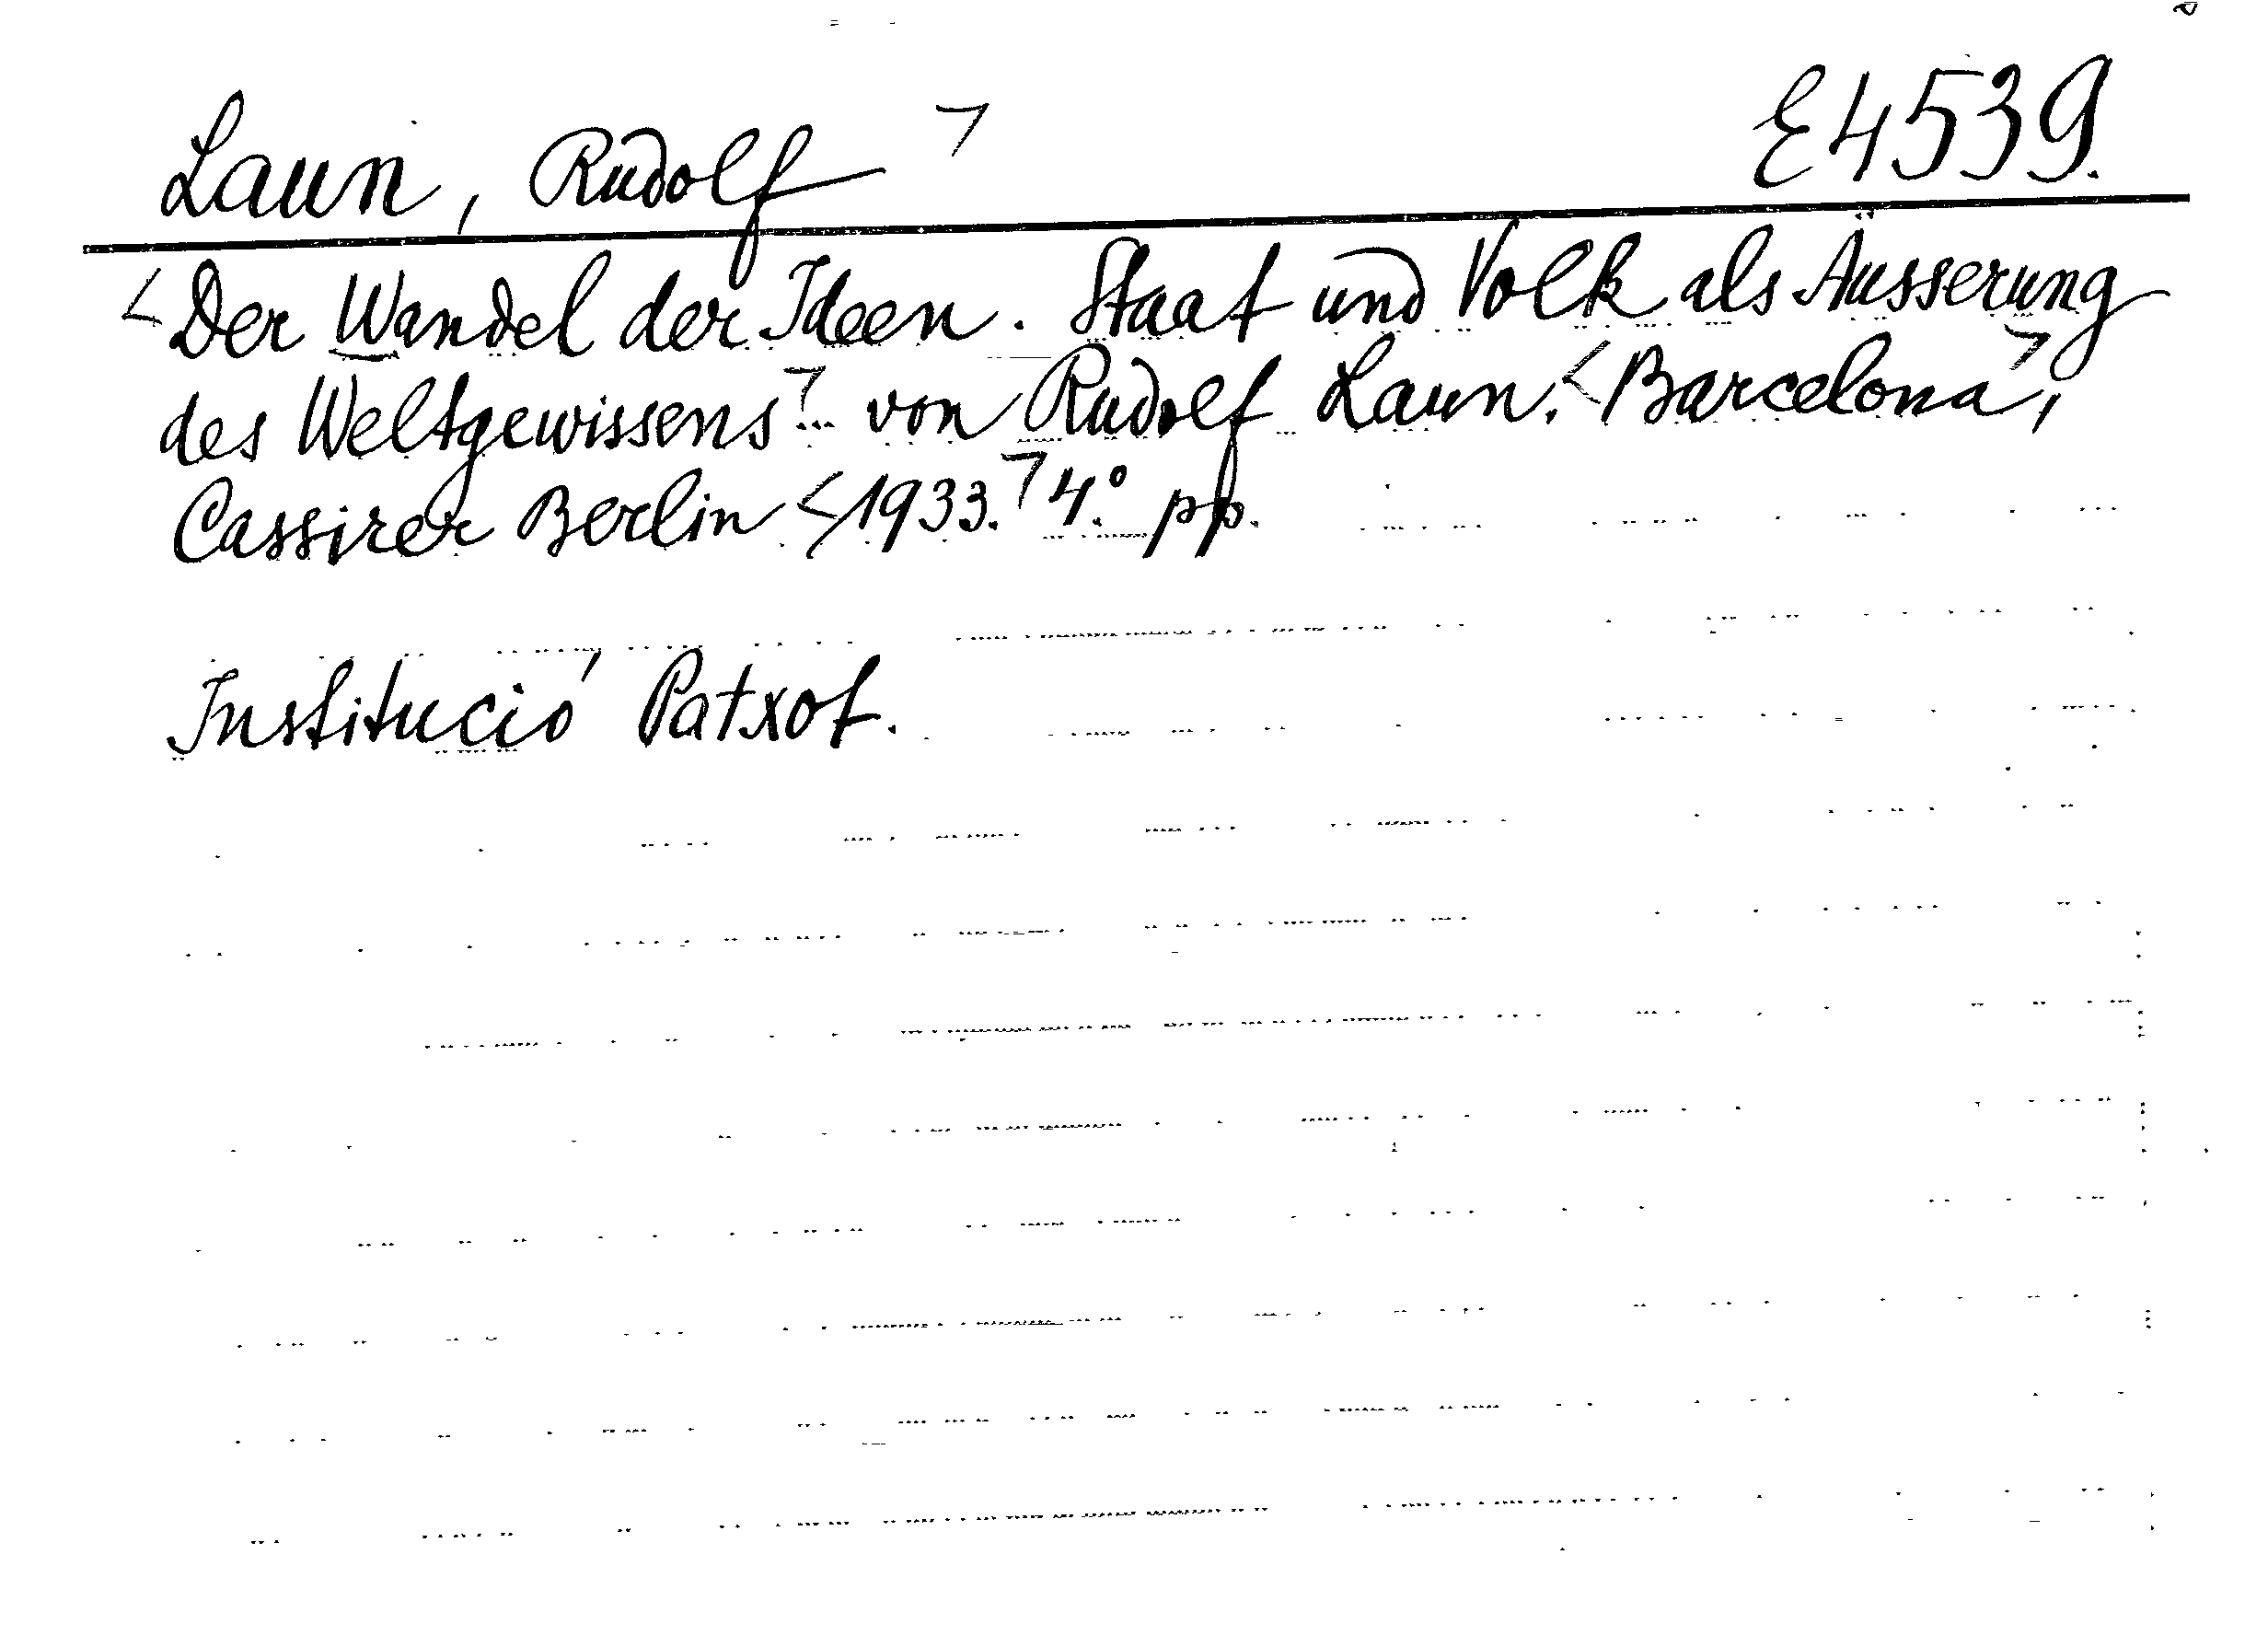 Laun, Rudolf ㄱ E 4539.
<Der Wandel der Ideen. Staat und Volk als Äusserung
des Weltgewissensㄱ von Rudolf Laun. <Barcelonaㄱ,
Cassirer Berlin <1933.ㄱ 4.º pp.
Institució Patxot.